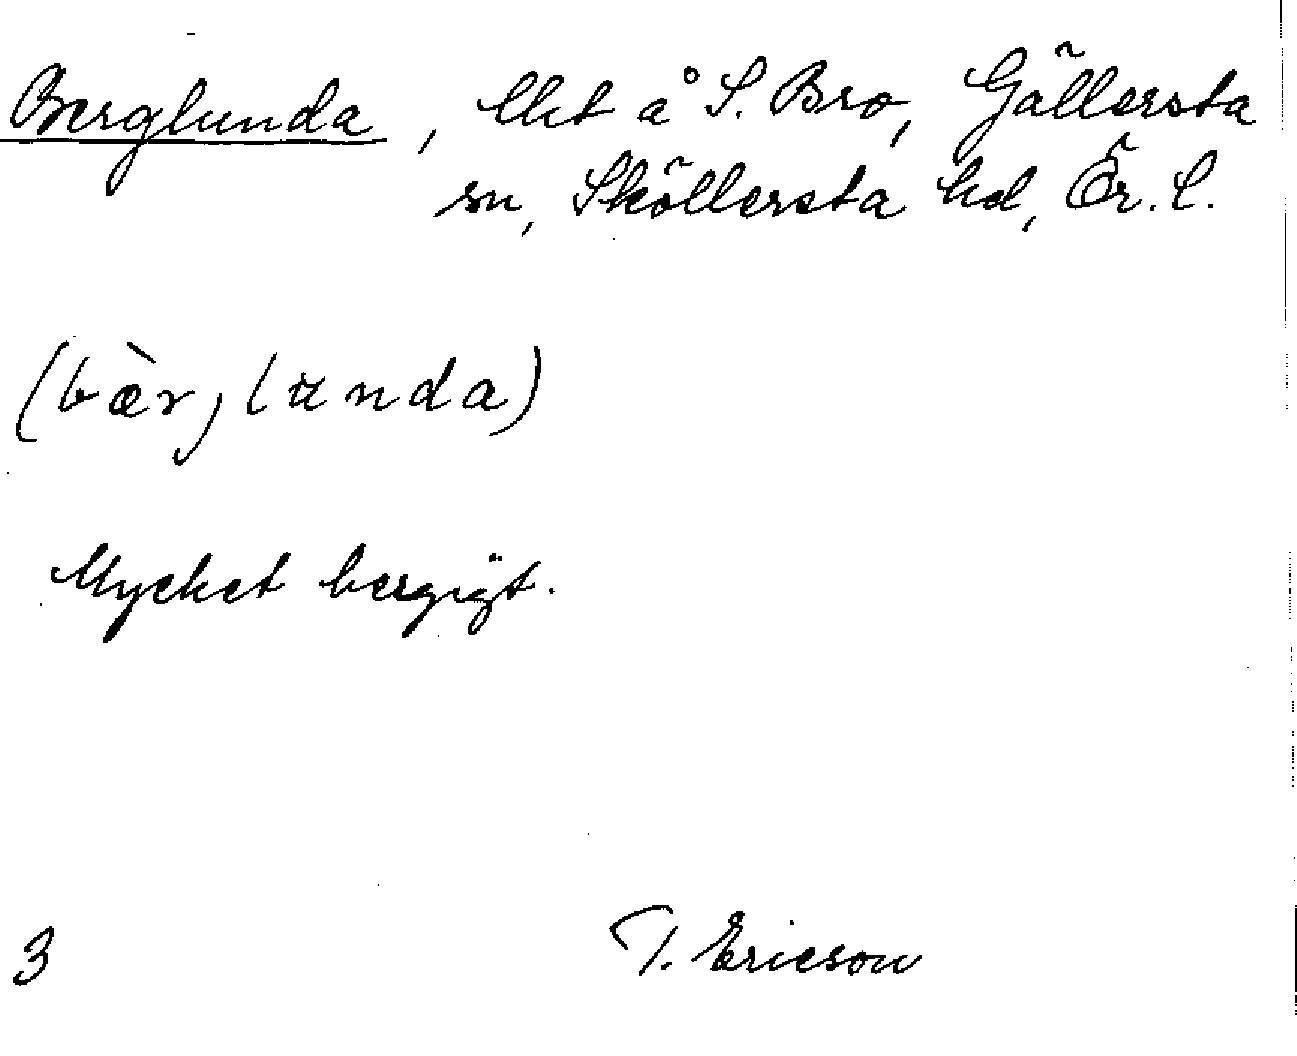 Berglunda, lht å S. Bro, Gällersta
sn, Sköllersta hd, Ör. l.
(bær, lunda)
Mycket bergigt.
3 T. Ericson